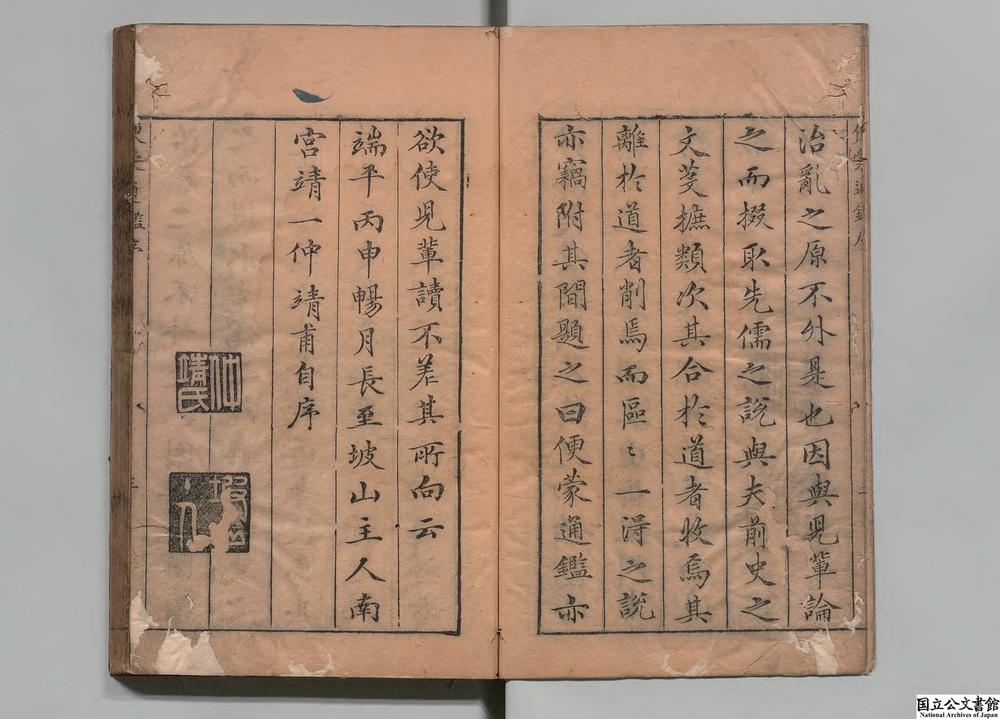 治亂之原不外是也因與児軰論
之而掇取先儒之說與夫前史之
文芟摭類次其合於道者收焉其
離於道者削焉而區〻一淂之說
亦竊附其間題之曰便蒙通鑑亦
欲使児軰讀不差其所向云
端平丙申暢月長至坡山主人南
宫靖一仲靖甫自序
仲靖氏
国立公文書館
National Archives of Japan